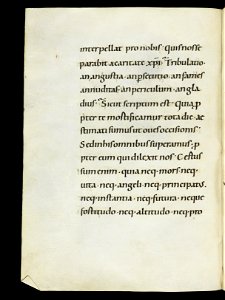 interpellat pro nobis · Quis nos se
parabit a caritate xpi · Tribulatio ·
an angustia · an psecutio · an fames ·
an nuditas · an periculum · an gla
dius · Sicut scriptum est · Quia p
pter te mortificamur tota die · ae
stimati sumus ut oves occisionis ·
Sed in his omnibus superamus ; p
pter eum qui dilexit nos · Certus
sum enim · quia neq · mors · neq ·
vita · neq · angeli · neq · principatus ·
neq · instantia · neq · futura · neque
fortitudo · neq · altitudo · neq · pro